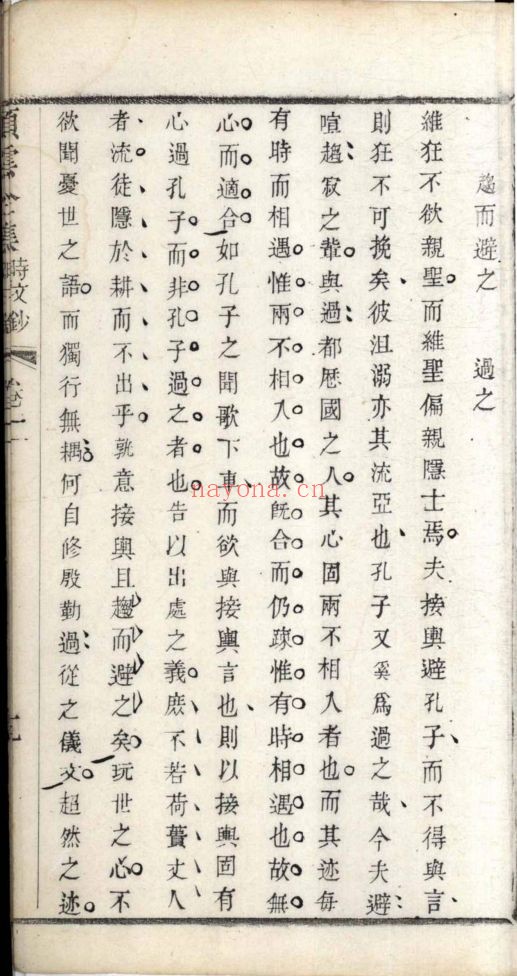 趨而避之　過之
維狂不欲親聖而維聖偏親隱士焉夫接輿避孔子而不得與言
則狂不可挽矣彼沮溺亦其流亞也孔子又奚爲過之哉今夫避
喧趨寂之輩與過都歷國之人其心固兩不相入者也而其迹每
有時而相遇惟兩不相入也故旣合而仍疎惟有時相遇也故無
心而適合如孔子之聞歌下車而欲與接輿言也則以接輿固有
心過孔子而非孔子過之者也告以出處之義庶不若荷蕢丈人
者流徒隱於耕而不出乎孰意接輿且趨而避之矣玩世之心不
欲聞憂世之語而獨行無耦何自修殷勤過從之儀文超然之迹
全集
時文鈔
卷二
nayona.cn